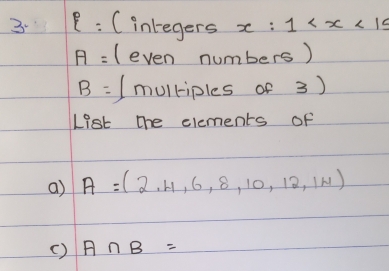 3. ξ = ( integers x : 1 < x < 15
A = ( even numbers )
B = ( multiples of 3 )
List the elements of
a) A = ( 2, 4, 6, 8, 10, 12, 14 )
c) A ∩ B =